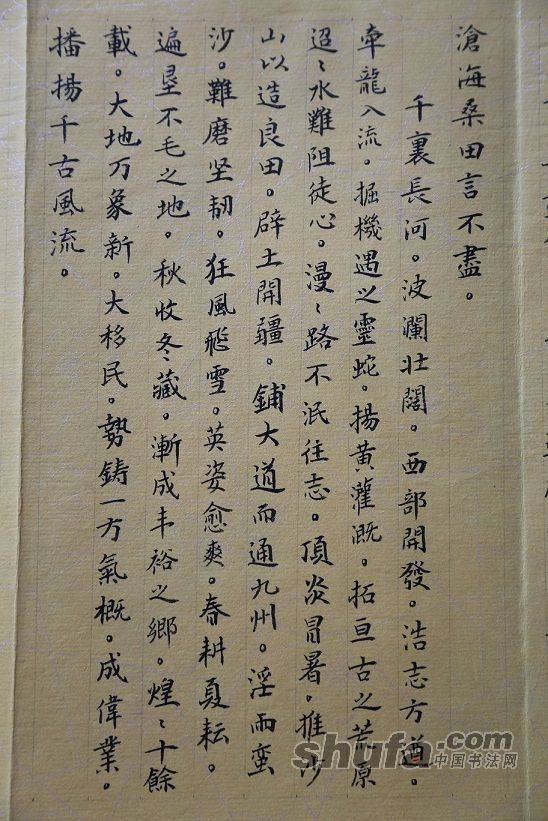 滄海桑田言不盡。
千裏長河。波瀾壯闊。西部開發。浩志方遒。
牽龍入流。掘機遇之靈蛇。揚黃灌溉。拓亘古之荒原
迢〻水難阻徒心。漫〻路不泯往志。頂炎冒暑。推沙
山以造良田。辟土開疆。鋪大道而通九州。淫雨蛮
沙。難磨坚韧。狂風飛雪。英姿愈爽。春耕夏耘。
遍垦不毛之地。秋收冬藏。漸成丰裕之鄉。煌〻十餘
載。大地万象新。大移民。勢鋳一方氣概。成偉業。
播揚千古風流。
shufa.com
中国书法网